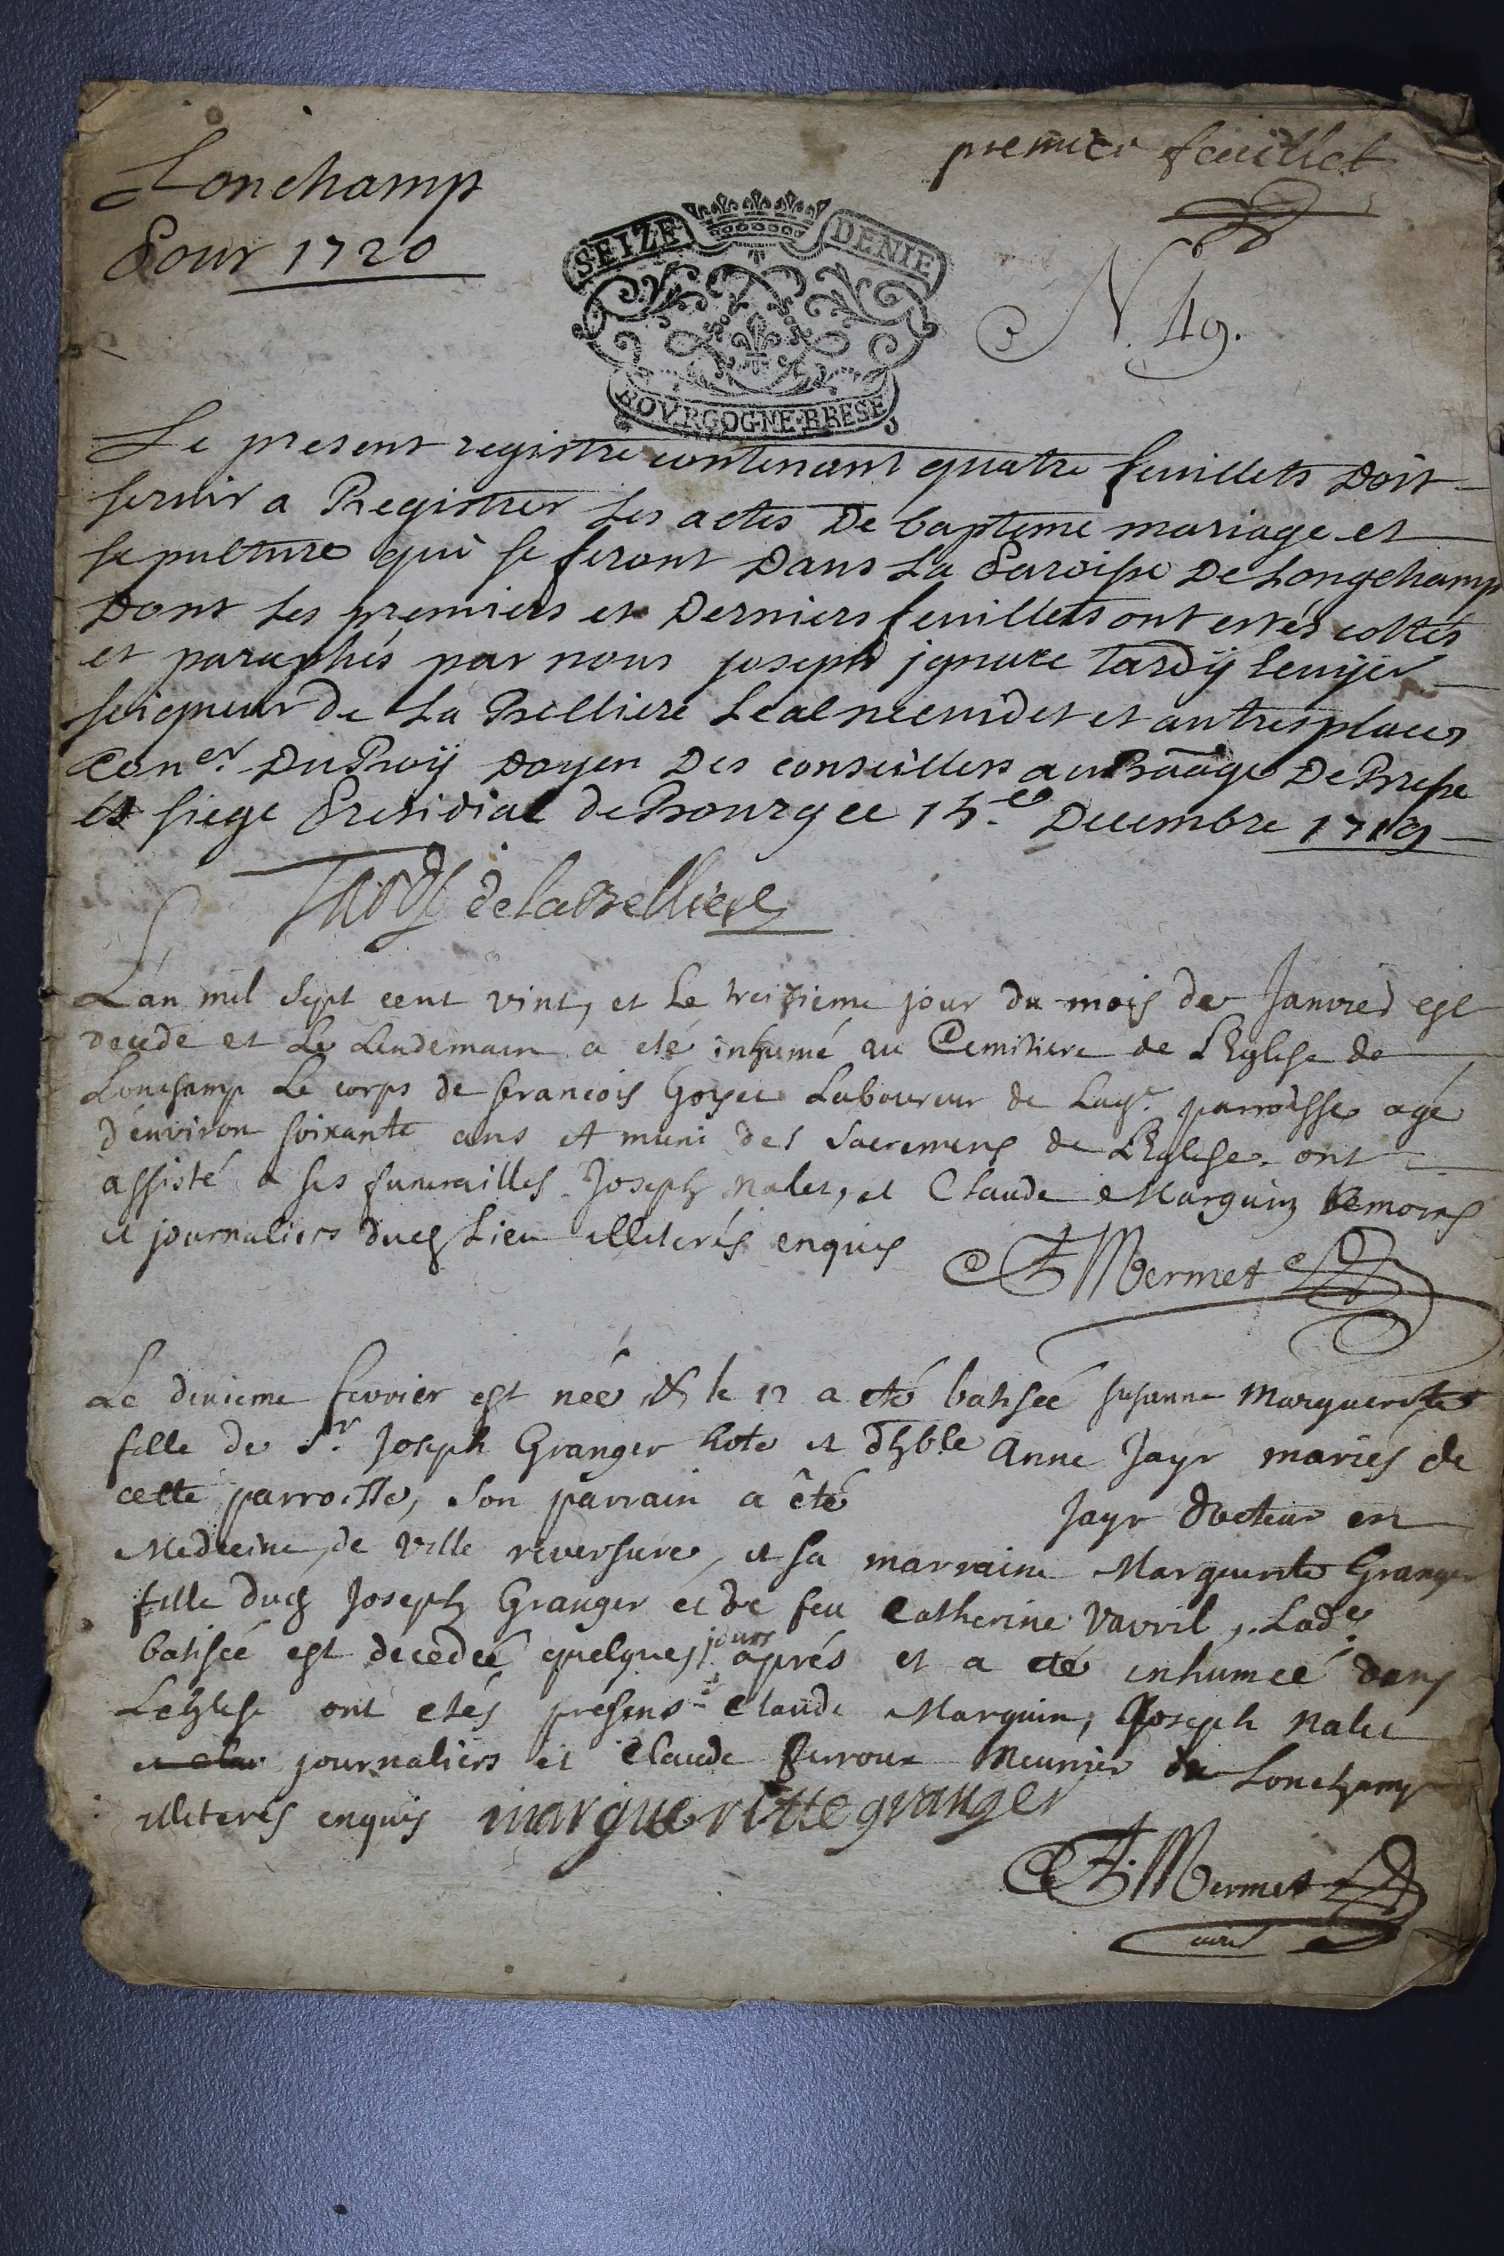 Lonchamp
Pour 1720
premier feuillet
SEIZE DENIE
BOVRGOGNE·BRESE
N. 49.
Le present registre contenant quatre feuillets Doit
servir a Registrer Les actes De bapteme mariage et
sepulture qui se feront Dans La Paroisse De Longchamp
Dont Les premiers et Derniers feuillets ont estés cottés
et paraphés par nous joseph jgnace Tardÿ Ecuÿer
seigneur de La Belliere et autres places
Con.er Du Roÿ Doyen Des conseillers au Baãge De Bresse
et siege Presidial de Bourg ce 15.e Decembre 1719
Tardy de la Belliere
L'an mil sept cent vint, et Le treizieme jour du mois de Janvier est
decedé et Le Lendemain a eté inhumé au Cemitiere de L'Eglise de
Lonchamp Le corps de francois Goyet Laboureur de Lad. parroisse agé
d'environ soixante ans et muni des sacremens de L'Eglise. ont
assisté a ses funerailles Joseph Nalet, et Claude Marguin temoins
et journaliers dud Lieu illeterés enquis
F Mermet
Le deuxieme fevrier est née & le 12 a eté batisée susanne Marguerite
fille de Sr. Joseph Granger hote et dhble Anne Jayr mariés de
cette parroisse, son parrain a été Jayr docteur en
Medecine, de Ville reversure, et sa marraine Marguerite Granger
fille dud Joseph Granger et de feu Catherine Vavril, . Lade
batisée est decedée quelques jours aprés et a eté inhumée dans
L'eglise ont etés presens Claude Marguin, Joseph Nalet
et clau journaliers et Claude Perroux Meunier de Lonchamp
illeterés enquis margueritte granger
F. Mermet
curé